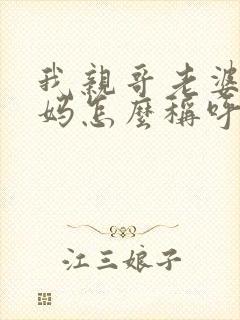 我親哥老婆
媽怎麼稱呼
江三娘子